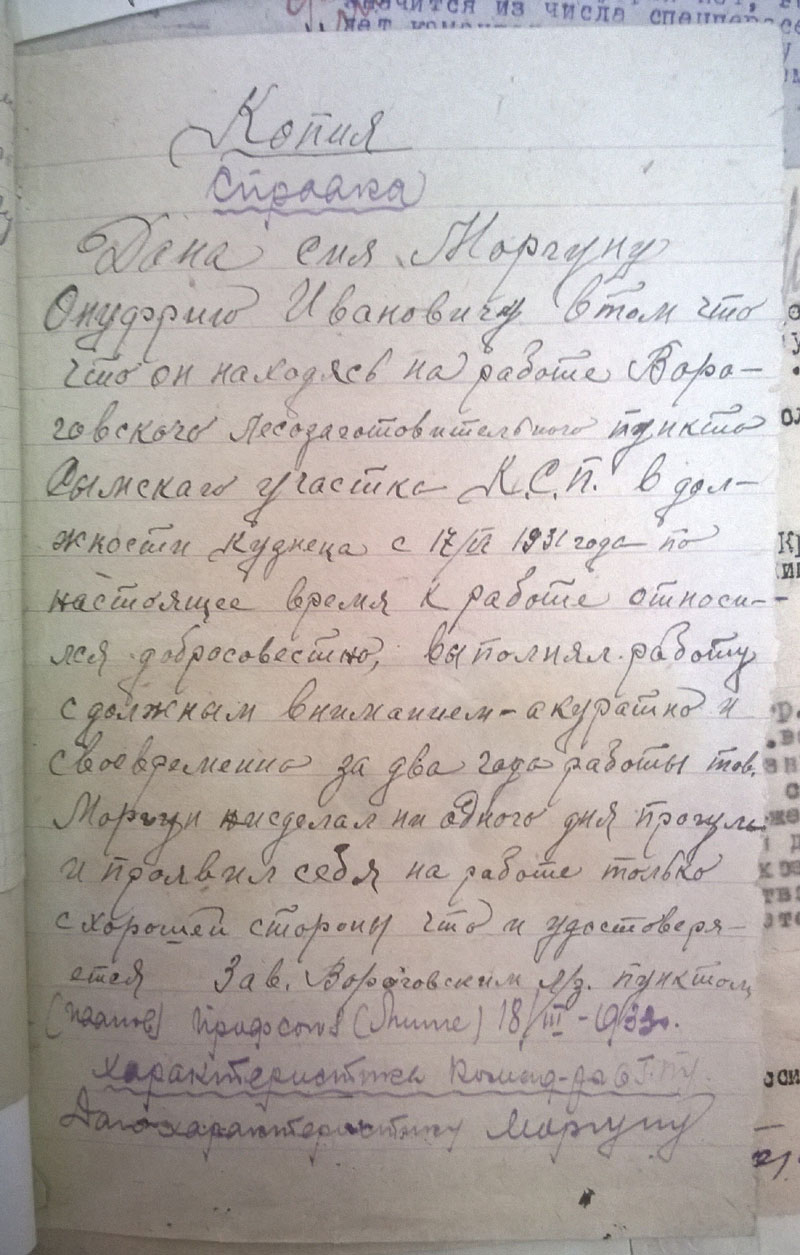 значится из числа спецпересе
Копия
Справка
Дана сия Моргуну
Онуфрию Ивановичу втом что
что он находясь на работе Воро-
говского лесозаготовительного пункта
Сымскаго участка К.С.П. в дол-
жности кузнеца с 17/VI 1931 года по
настоящее время к работе относи-
лся добросовестно, выполнял работу
с должным вниманием - акуратно и
своевременно за два года работы тов.
Моргун нисделал ни одного дня прогула
и проявил себя на работе только
с хорошей стороны что и удостоверя-
ется Зав. Вороговским л/з. пунктом
Профсоюз 18/III - 1933г.
Характеристика
Даю характеристику Моргуну